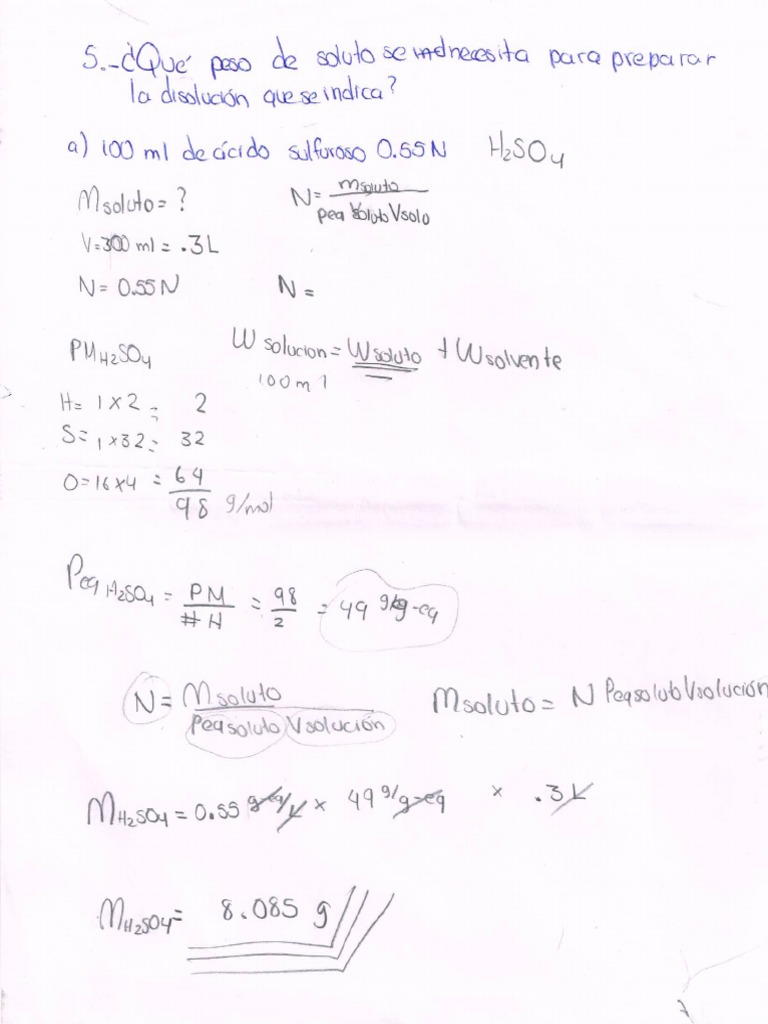 5.-¿Qué peso de soluto se necesita para preparar
la disolución que se indica?
a) 100 ml de ácido sulfuroso 0.55N H₂SO₄
Msoluto = ? N = msoluto / peq soluto Vsolo
V=300 ml = .3L
N= 0.55N N =
PM H₂SO₄ W solucion = W soluto + W solvente
100 ml
H= 1 x 2 = 2
S= 1 x 32 = 32
O=16x4 = 64
98 g/mol
Peq H₂SO₄ = PM / #H = 98 / 2 = 49 g/g-eq
N = Msoluto / Peq soluto Vsolución Msoluto = N Peq soluto Vsolución
M H₂SO₄ = 0.55 g-eq/L x 49 g/g-eq x .3L
M H₂SO₄ = 8.085 g